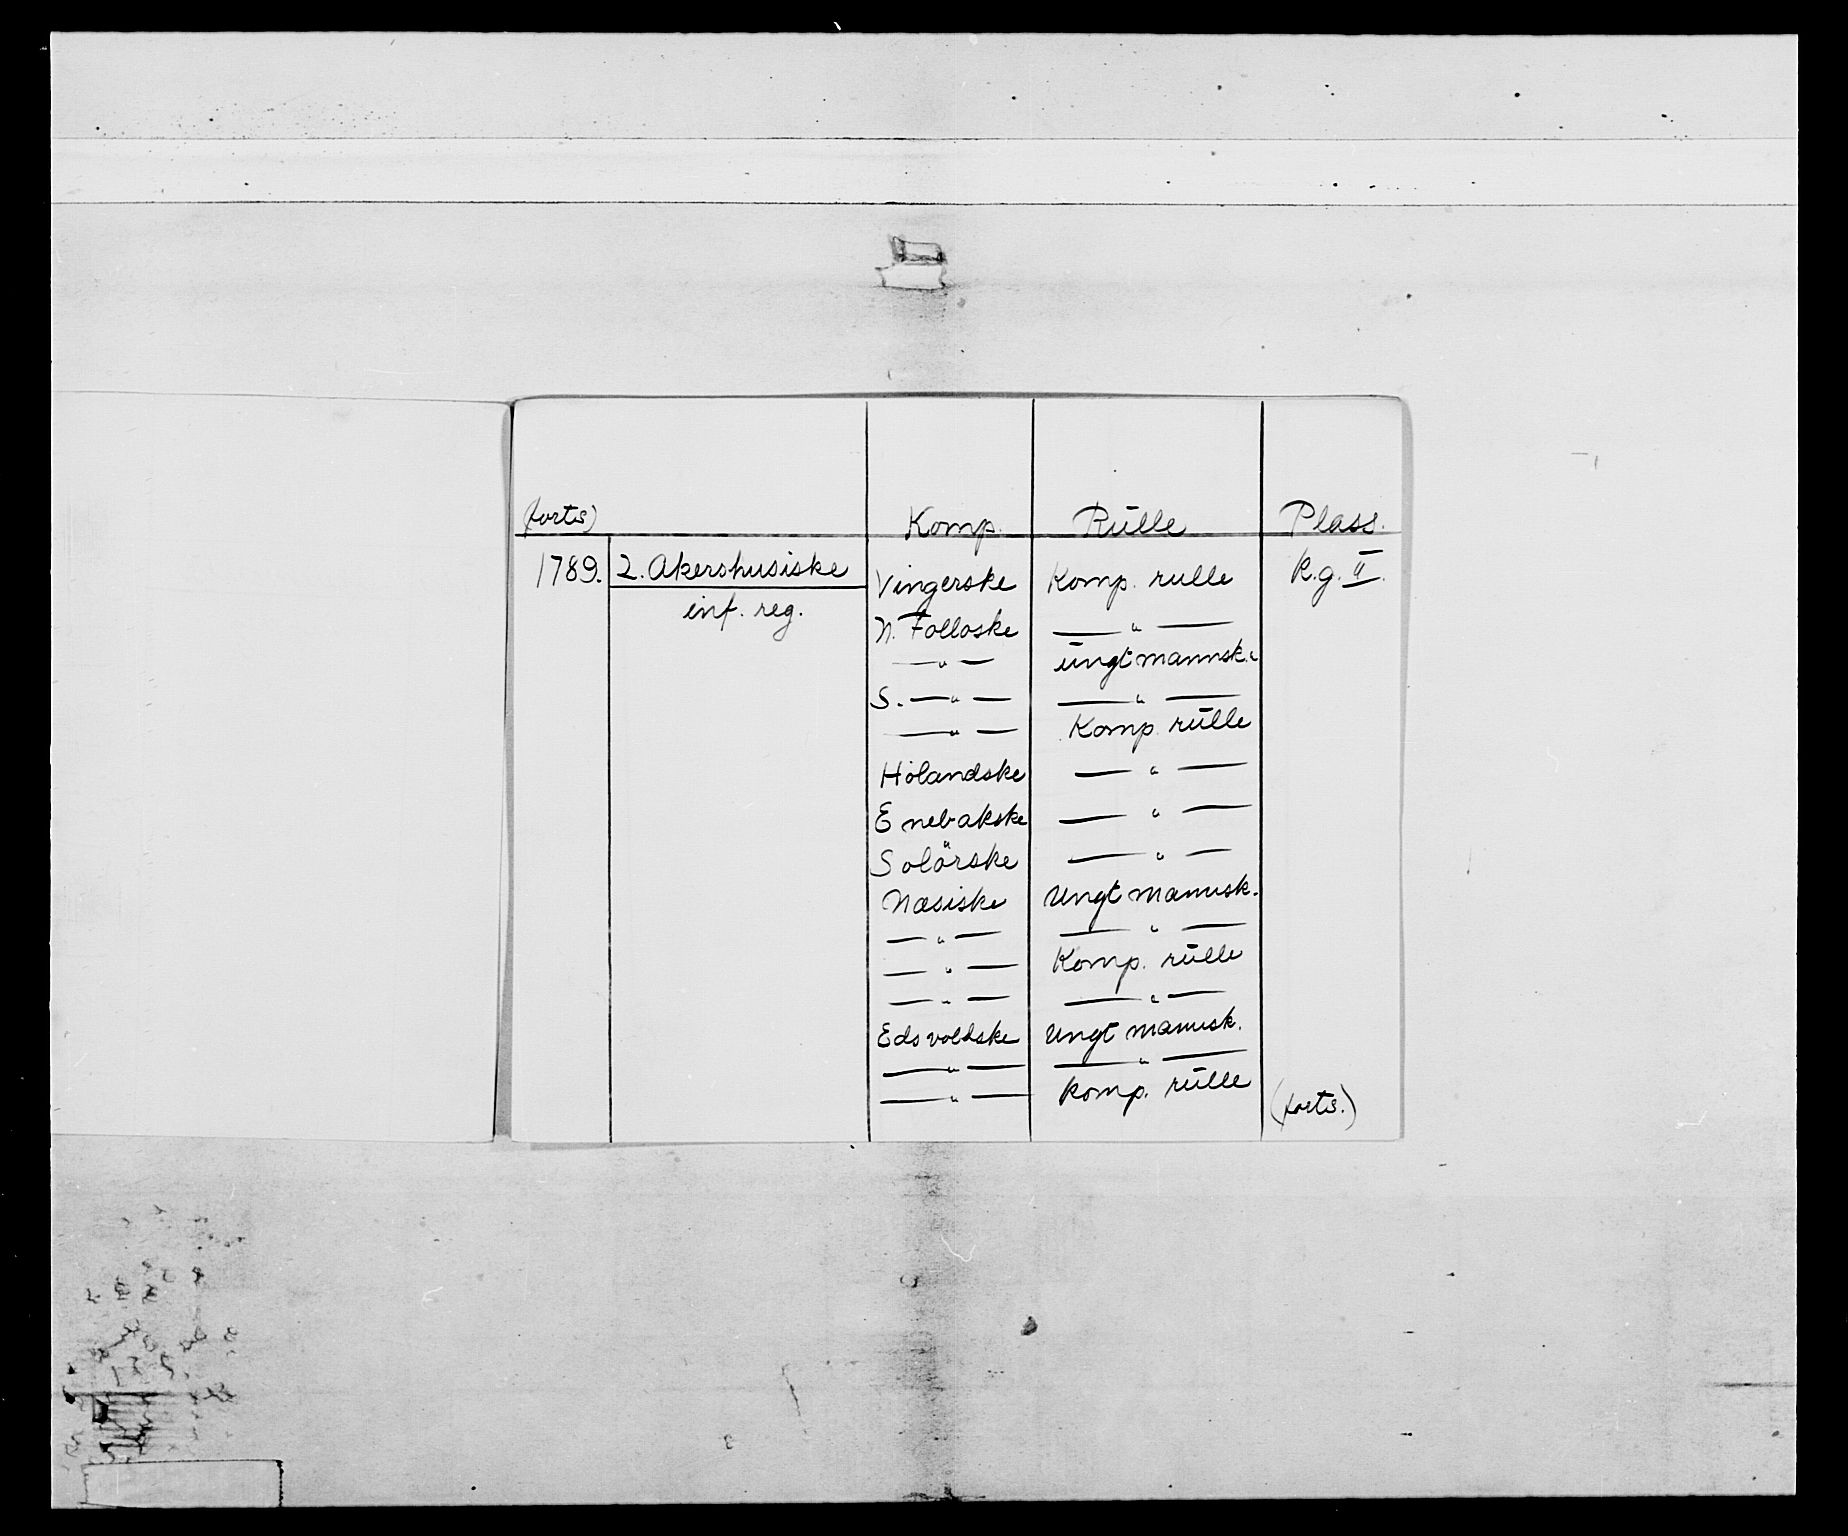 (forts) Komp. Rulle Plass.
1789. 2. Akershusiske Vingerske Komp. rulle R.g. II.
inf. reg. N. Folloske — " —
— " — ungt mannsk.
S. — " — — " —
— " — Komp. rulle
Hölandske — " —
Enebakske — " —
Solörske — " —
Næsiske Ungt mannsk.
— " — — " —
— " — Komp. rulle
— " — — " —
Edsvoldske Ungt mannsk.
— " — — " —
— " — Komp. rulle (forts.)